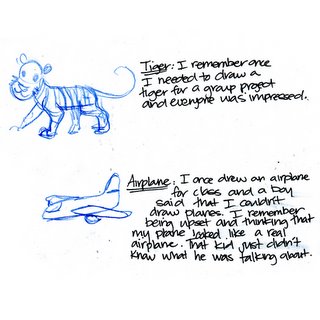 Tiger: I remember once
I needed to draw a
tiger for a group project
and everyone was impressed.
Airplane: I once drew an airplane
for class and a boy
said that I couldn't
draw planes. I remember
being upset and thinking that
my plane looked like a real
airplane. That kid just didn't
know what he was talking about.